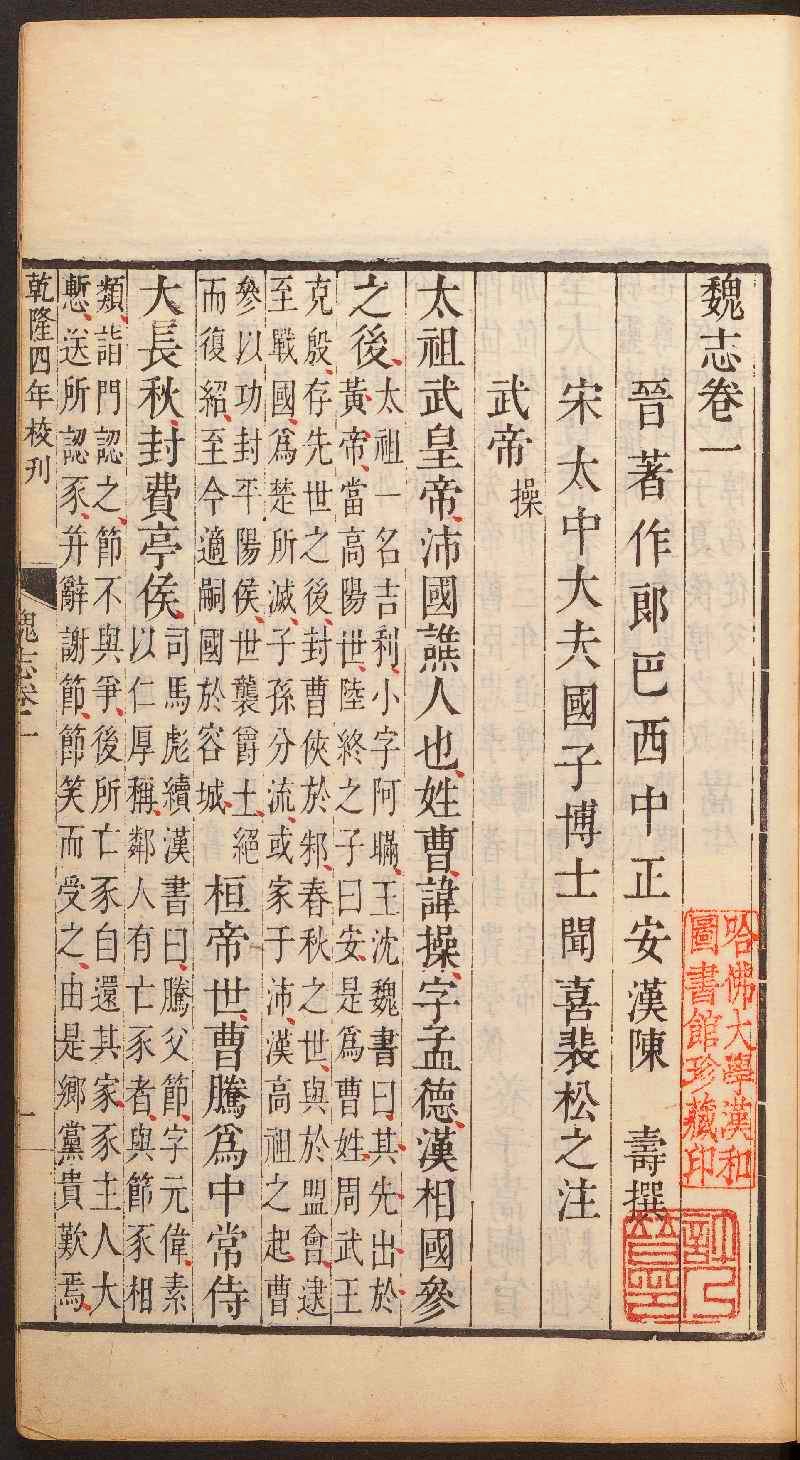 魏志卷一
哈佛大學漢和
圖書館珍藏印
晉著作郎巴西中正安漢陳　壽撰
宋太中大夫國子博士聞喜裴松之注
武帝操
太祖武皇帝沛國譙人也姓曹諱操字孟德漢相國參
之後
太祖一名吉利小字阿瞞王沈魏書曰其先出於
黃帝當高陽世陸終之子曰安是爲曹姓周武王
克殷存先世之後封曹俠於邾春秋之世與於盟會逮
至戰國爲楚所滅子孫分流或家于沛漢高祖之起曹
參以功封平陽侯世襲爵土絕
而復紹至今適嗣國於容城
桓帝世曹騰爲中常侍
大長秋封費亭侯
司馬彪續漢書曰騰父節字元偉素
以仁厚稱鄰人有亡豕者與節豕相
類詣門認之節不與爭後所亡豕自還其家豕主人大
慙送所認豕并辭謝節節笑而受之由是鄉黨貴歎焉
乾隆四年校刊
魏志卷一
一